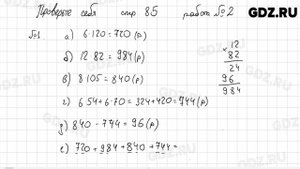 GDZ.RU
Проверьте себя стр 85 работа №2
№1 а) 6·120=720(р)
б) 12·82=984(р)
12
82
24
96
984
в) 8·105=840(р)
г) 6·54+6·70=324+420=744(р)
д) 840-744=96(р)
е) 720+984+840+744=
GDZ.RU